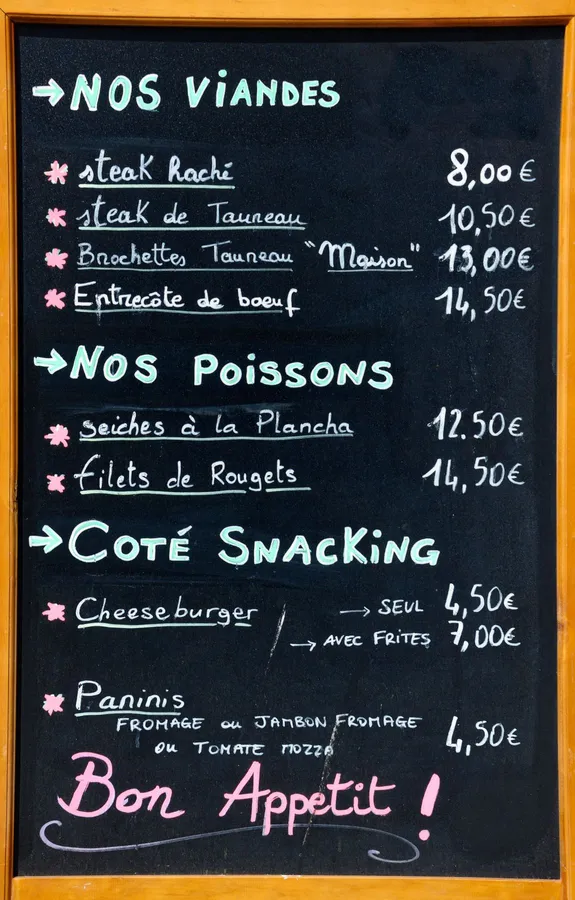 → NOS VIANDES
* steak Haché 8,00 €
* steak de Taureau 10,50 €
* Brochettes Taureau "Maison" 13,00 €
* Entrecôte de boeuf 14,50 €
→ NOS POISSONS
* seiches à la Plancha 12.50 €
* filets de Rougets 14,50 €
→ COTÉ SNACKING
* Cheeseburger → SEUL 4,50 €
→ AVEC FRITES 7,00 €
* Paninis
FROMAGE ou JAMBON FROMAGE
ou TOMATE MOZZA 4,50 €
Bon Appetit !